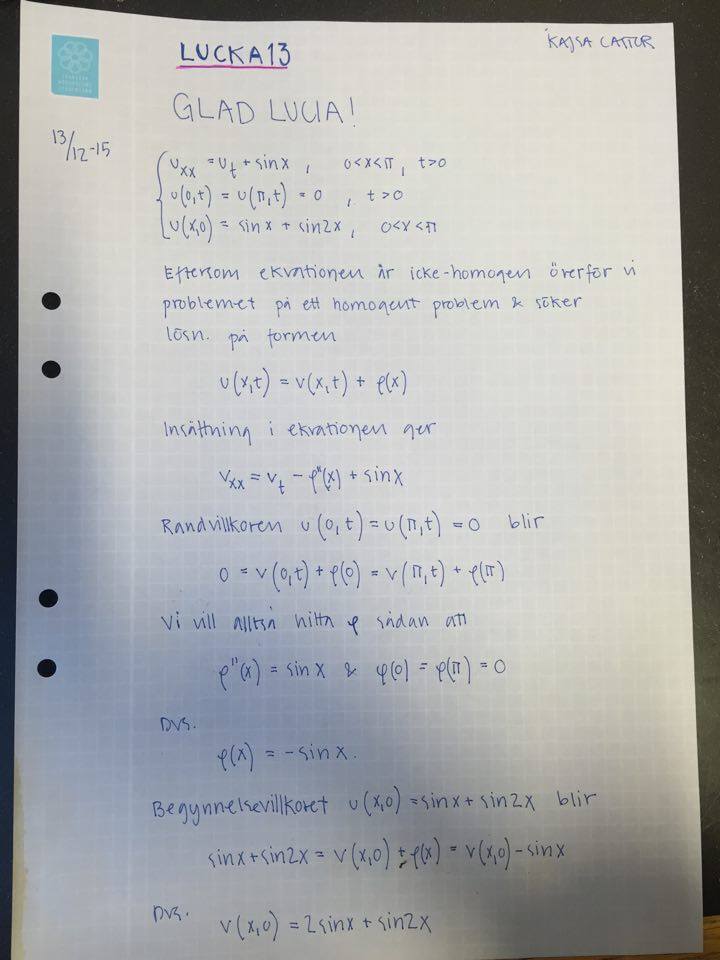 LUCKA 13
KAJSA CATTOR
GLAD LUCIA!
13/12-15
u_xx = u_t + sin x, 0<x<π, t>0
u(0,t) = u(π,t) = 0, t>0
u(x,0) = sin x + sin 2x, 0<x<π
Eftersom ekvationen är icke-homogen överför vi
problemet på ett homogent problem & söker
lösn. på formen
u(x,t) = v(x,t) + φ(x)
Insättning i ekvationen ger
v_xx = v_t - φ''(x) + sin x
Randvillkoren u(0,t) = u(π,t) = 0 blir
0 = v(0,t) + φ(0) = v(π,t) + φ(π)
Vi vill alltså hitta φ sådan att
φ''(x) = sin x & φ(0) = φ(π) = 0
Dvs.
φ(x) = -sin x.
Begynnelsevillkoret u(x,0) = sin x + sin 2x blir
sin x + sin 2x = v(x,0) + φ(x) = v(x,0) - sin x
Dvs. v(x,0) = 2 sin x + sin 2x